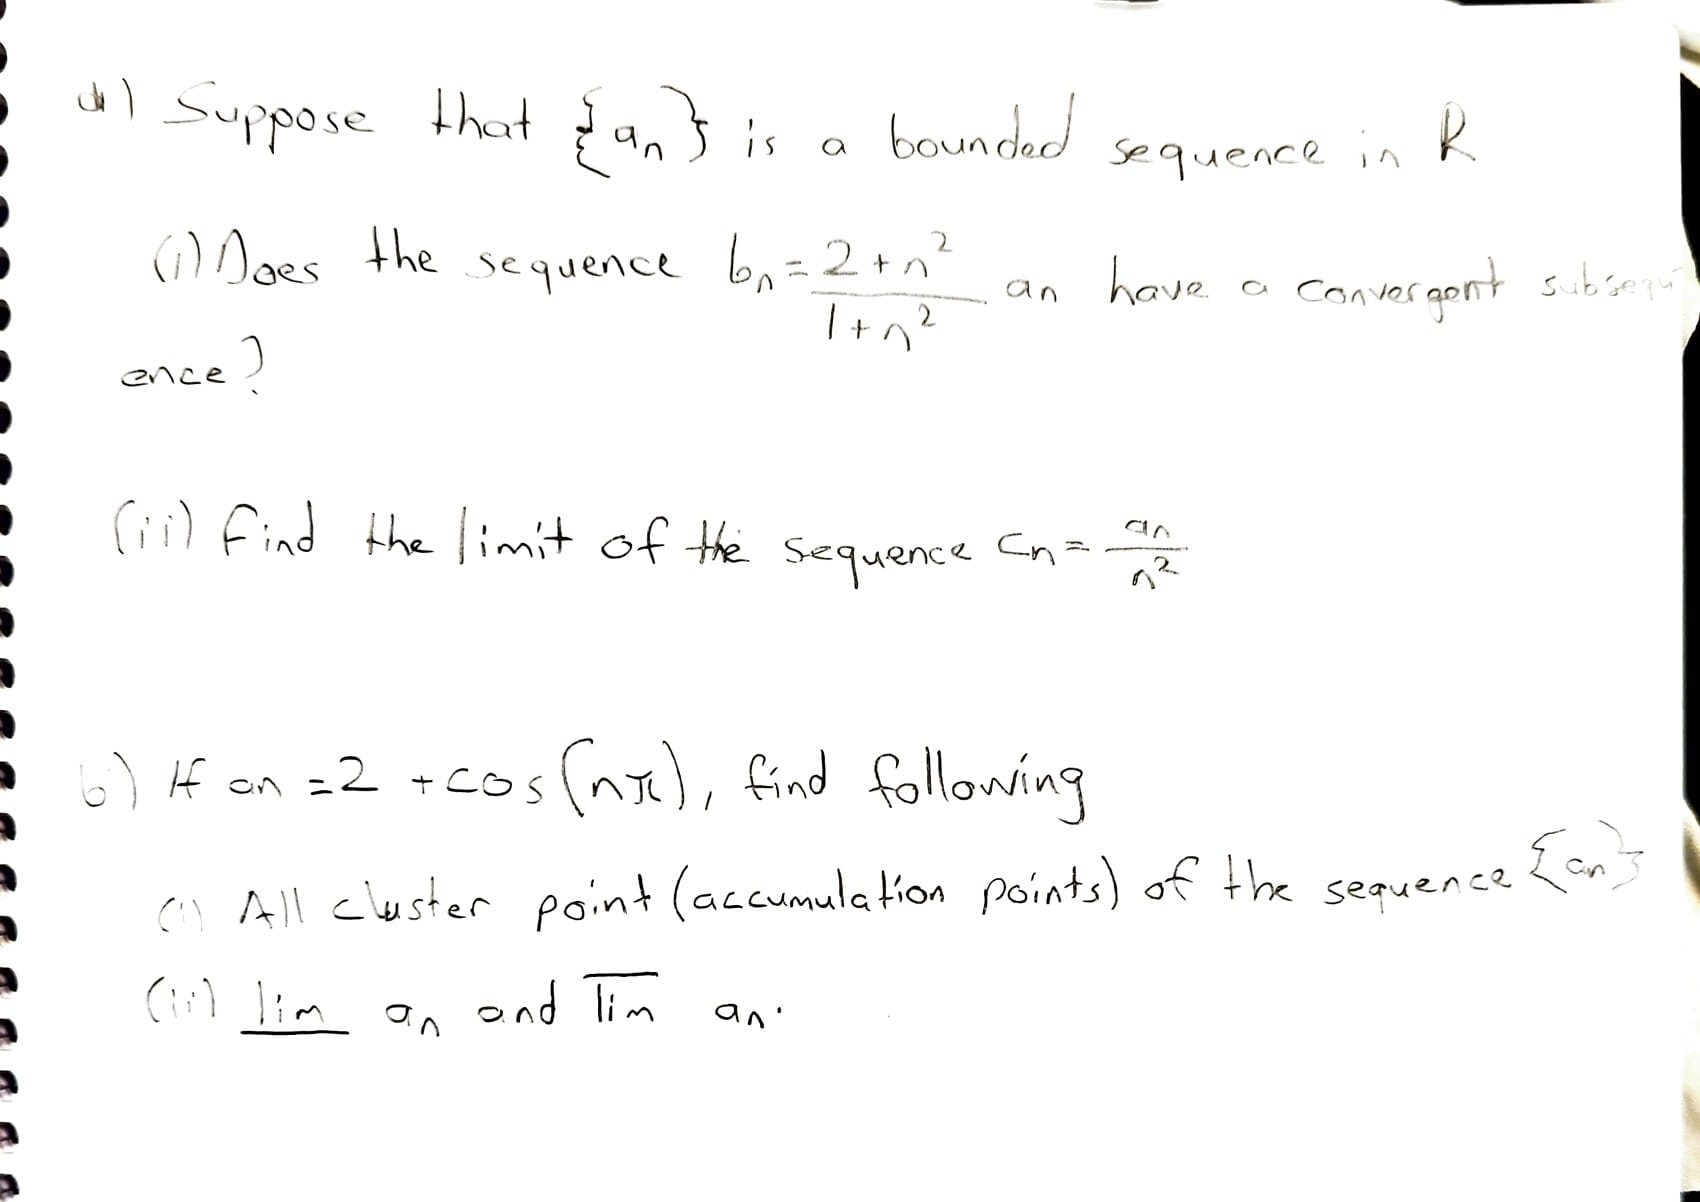 a) Suppose that {an} is a bounded sequence in R
(i) Does the sequence bn = 2+n² / 1+n² an have a convergent subsequ
ence?
(ii) find the limit of the sequence cn = an / n²
b) If an = 2 + cos(nπ), find following
(i) All cluster point (accumulation points) of the sequence {an}
(ii) lim an and lim an.